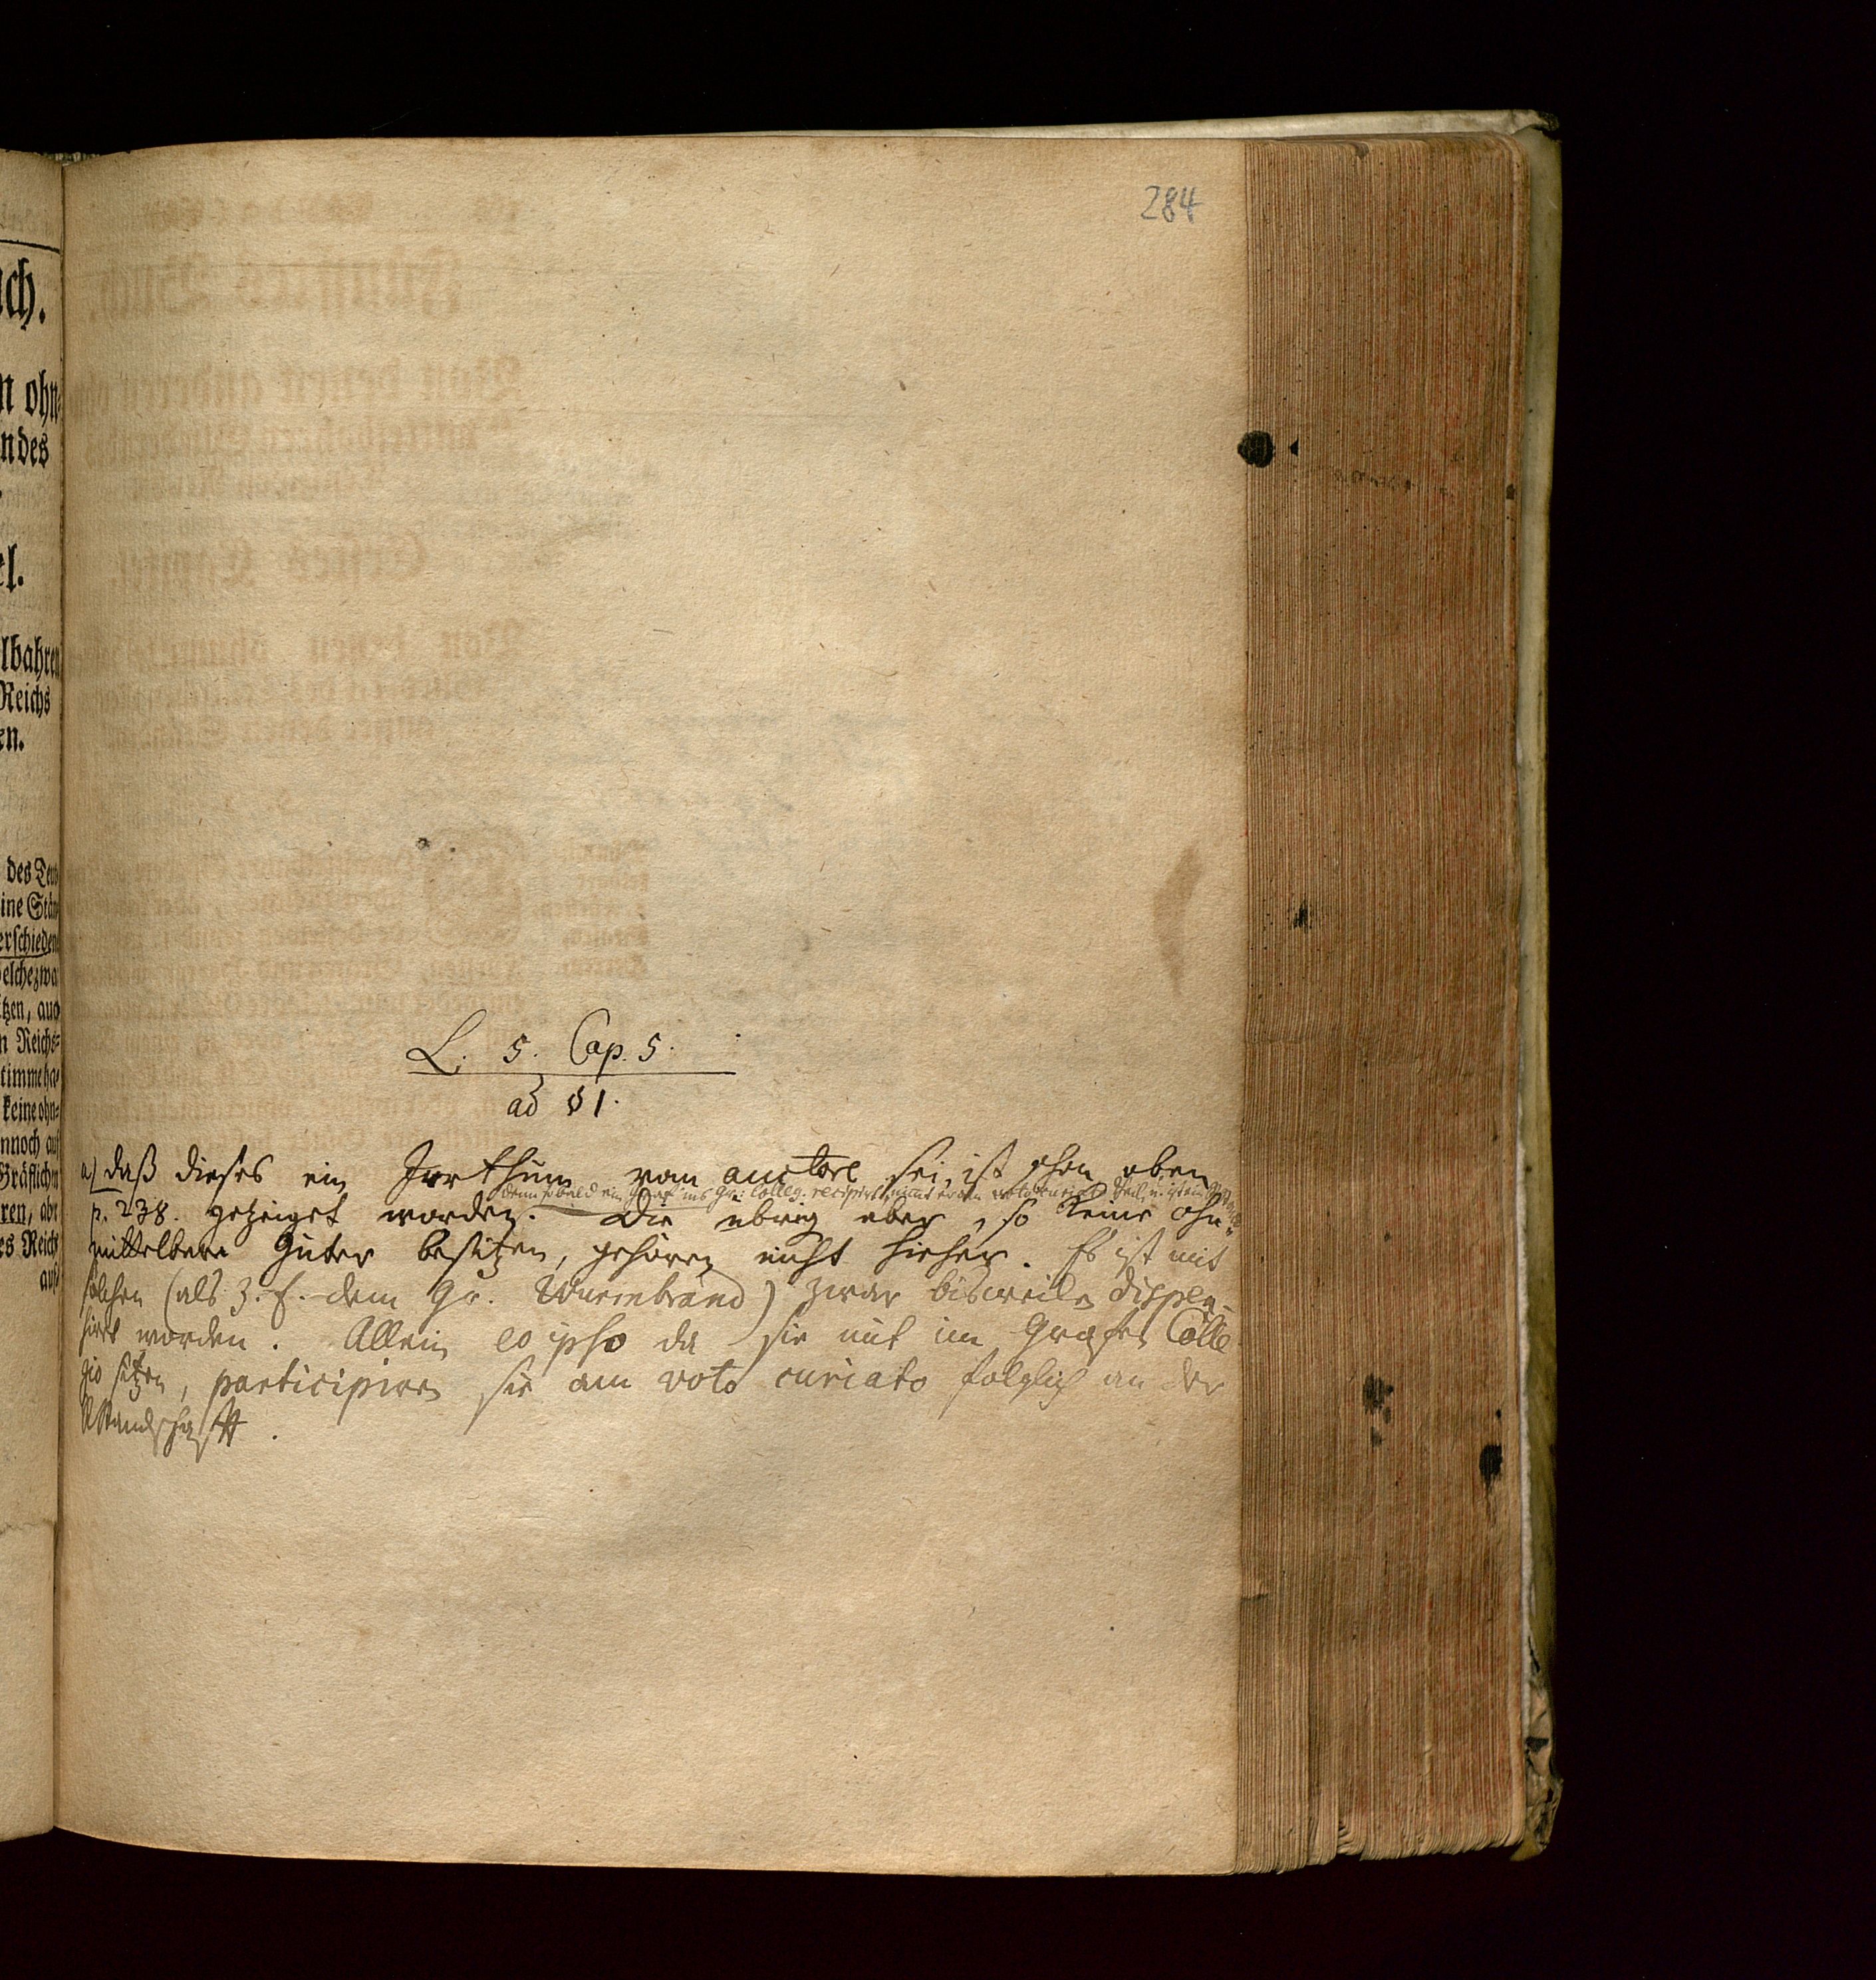 284
ch.
n ohn-
n des
el.
lbahren
Reichs
en.
des Teu-
ine Stän-
erschieden
elche zwa
tzen, auch
n Reichs-
timme ha-
keine ohn-
nnoch auf
Gräflichen
ren, abe
es Reichs
auf
L. 5. Cap. 5.
ad § 1.
a) daß dieses ein Irrthum vom auctore sei, ist schon oben
denn sobald ein Graf ins Gr: Colleg. recipirt, nimt er am voto curiat. Theil, u. ist ein
p. 238. gezeiget worden. Die übrig aber, so keine ohn-
mittelbare Güter besitzen, gehören nicht hieher. Es ist mit
solchen (als z. E. dem Gr. Wurmbrand) zwar bisweilen dispen-
sirt worden. Allein eo ipso da sie mit im Grafen Colle-
gio sitzen, participiren sie am voto curiato folglich an der
RStandschafft.